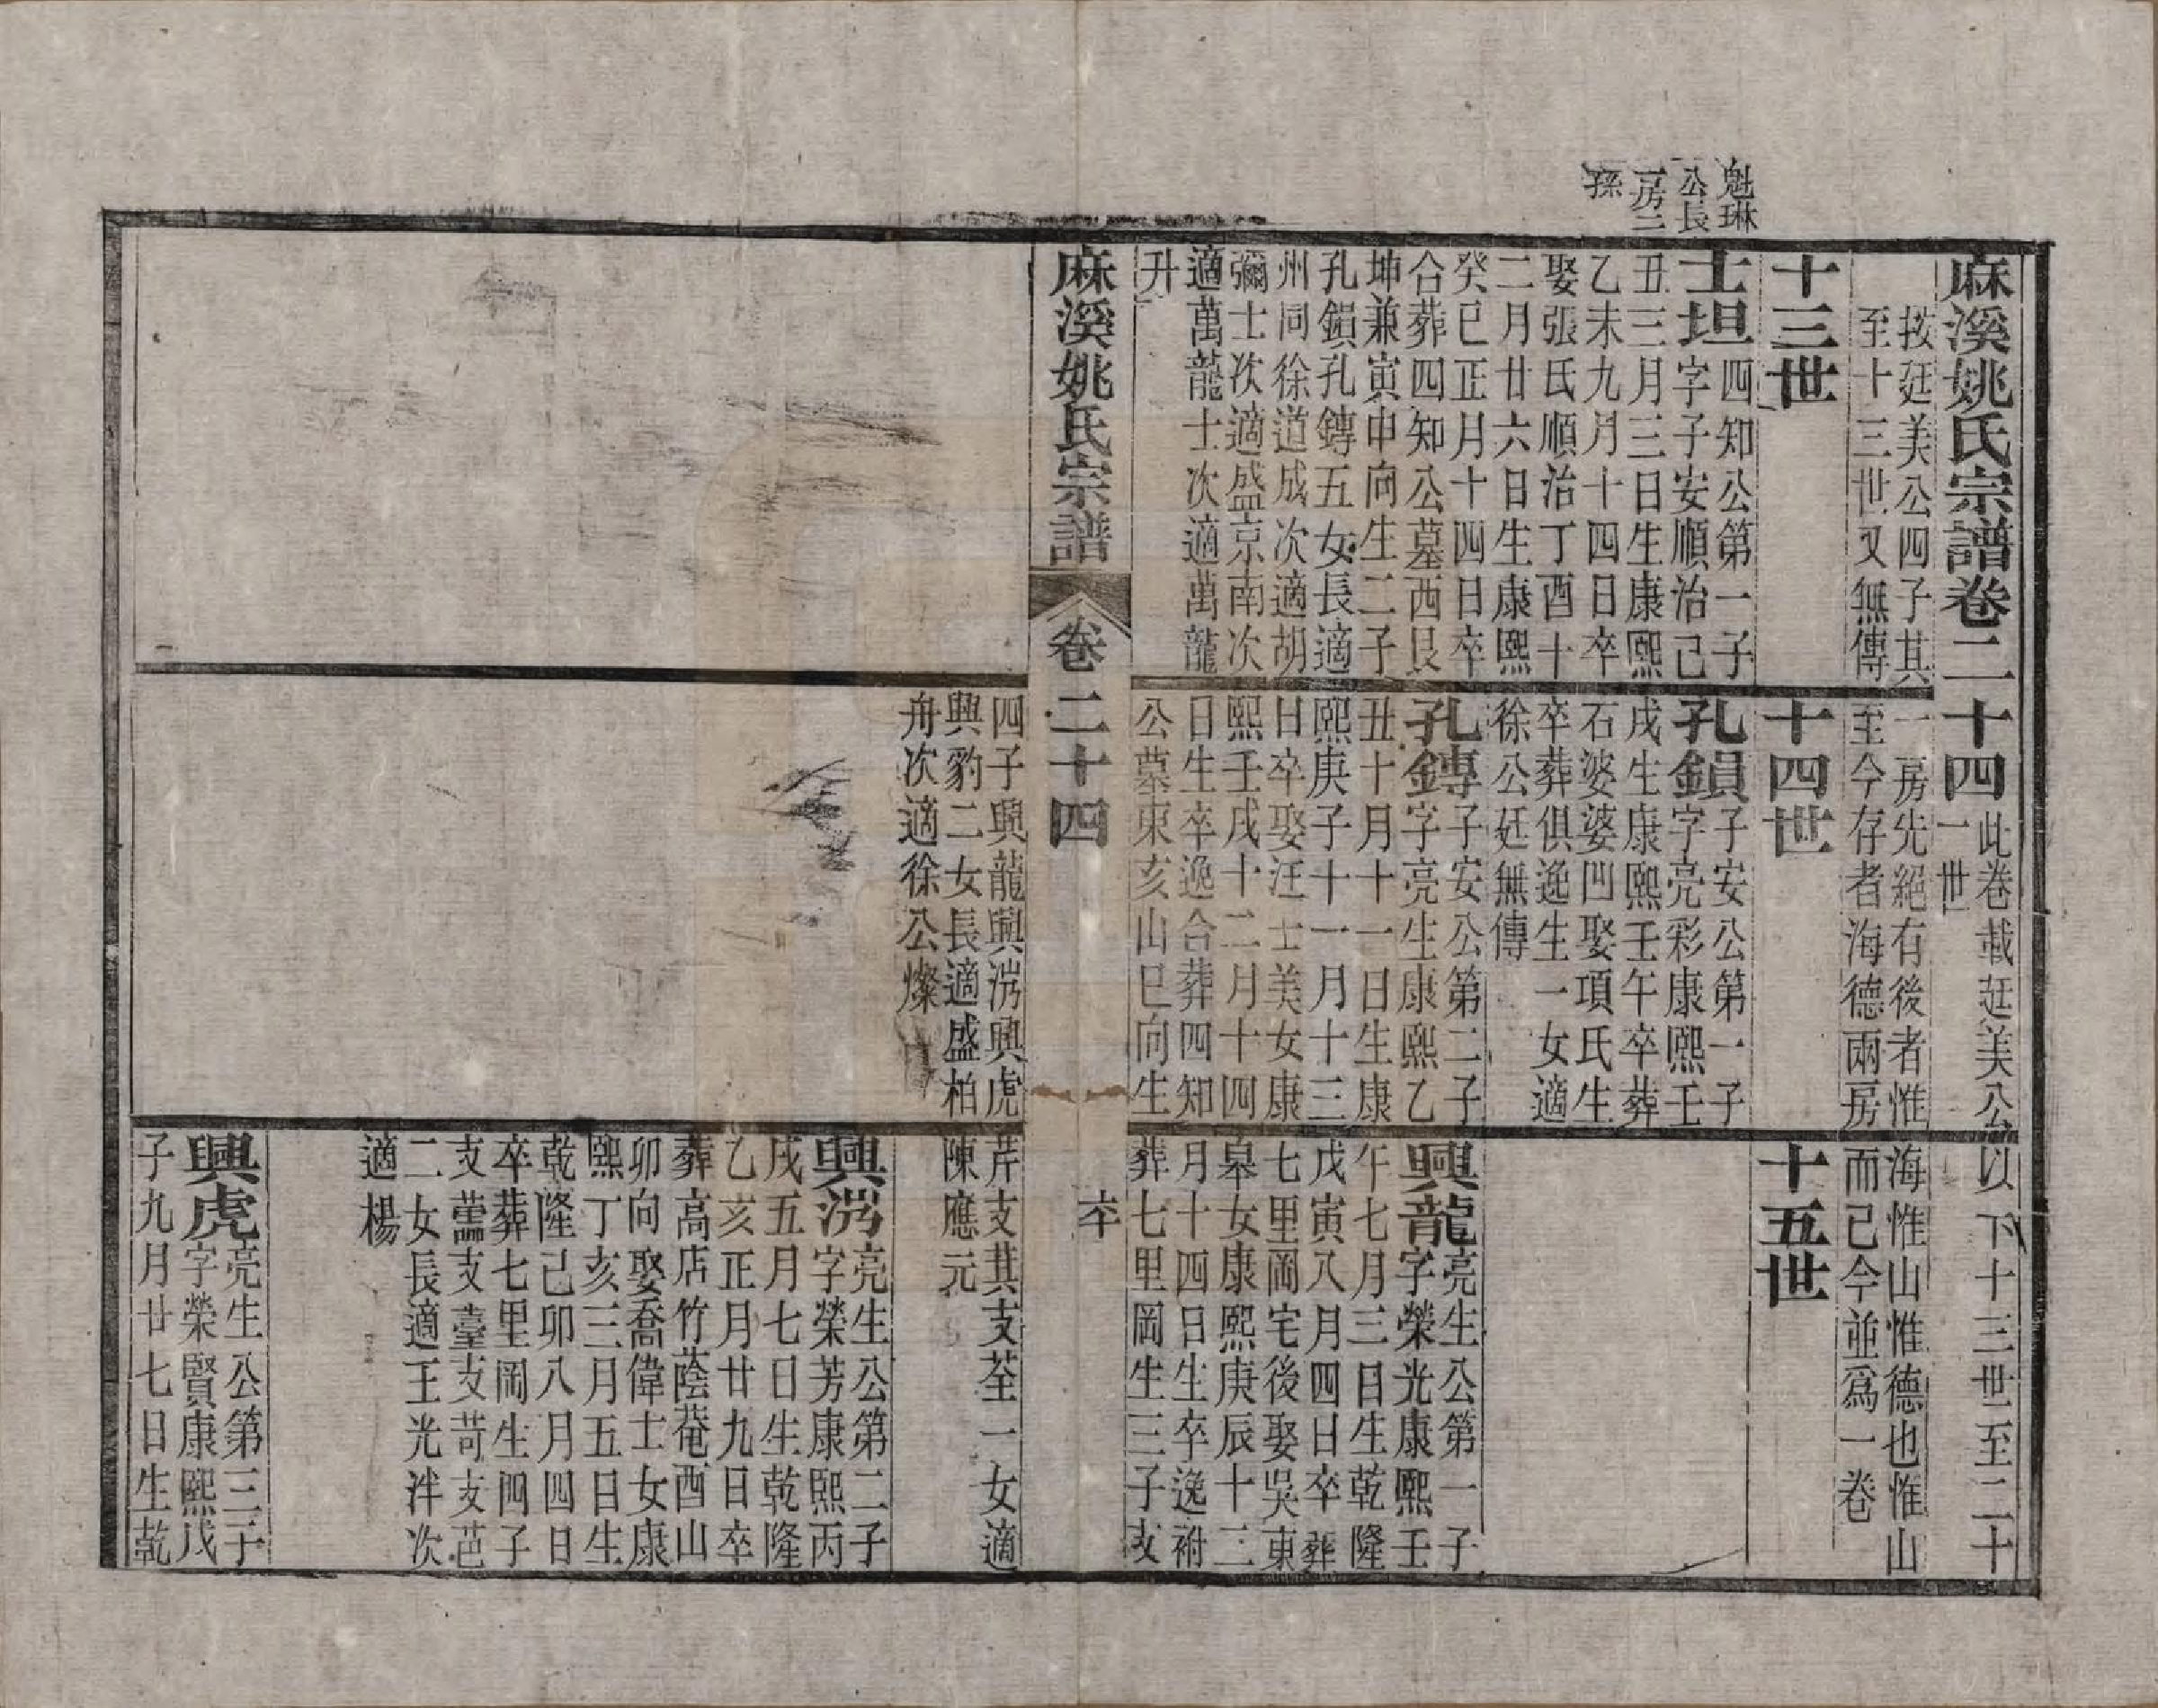 麻溪姚氏宗譜卷二十四此卷載廷美公以下十三世至二十一世
按廷美公四子其一房先絕有後者惟海惟山惟德也惟山
至十三世又無傳至今存者海德兩房而已今並為一卷
十三世
十四世
十五世
魁琳
公長
二房二
孫
士坦四知公第一子
字子安順治己
丑三月三日生康熙
乙未九月十四日卒
娶張氏順治丁酉十
二月廿六日生康熙
癸巳正月十四日卒
合葬四知公墓西艮
坤兼寅申向生二子
孔鎖孔鏄五女長適
州同徐道成次適胡
彌士次適盛京南次
適萬龍士次適萬龍
升
孔鎖子安公第一子
字亮彩康熙壬
戌生康熙壬午卒葬
石婆婆凹娶項氏生
卒葬俱逸生一女適
徐公廷無傳
孔鏄子安公第二子
字亮生康熙乙
丑十月十一日生康
熙庚子十一月十三
日卒娶汪士美女康
熙壬戌十二月十四
日生卒逸合葬四知
公墓東亥山巳向生
興龍亮生公第一子
字榮光康熙壬
午七月三日生乾隆
戊寅八月四日卒葬
七里岡宅後娶吳東
皋女康熙庚辰十二
月十四日生卒逸祔
葬七里岡生三子支
麻溪姚氏宗譜 卷二十四
四子興龍興涝興虎
興豹二女長適盛柏
舟次適徐公燦
芹支其支荃一女適
陳應元
興涝亮生公第二子
字榮芳康熙丙
戌五月七日生乾隆
乙亥正月廿九日卒
葬高店竹蔭菴酉山
卯向娶喬偉士女康
熙丁亥三月五日生
乾隆己卯八月四日
卒葬七里岡生四子
支藟支臺支苛支芭
二女長適王光泮次
適楊
興虎亮生公第三子
字榮賢康熙戊
子九月廿七日生乾